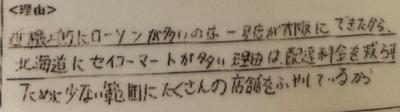 <理由>
近畿地方にローソンが多いのは一号店が大阪にできたから、
北海道にセイコーマートが多い理由は、配達料金を減らす
ために少ない範囲にたくさんの店舗をふやしているから